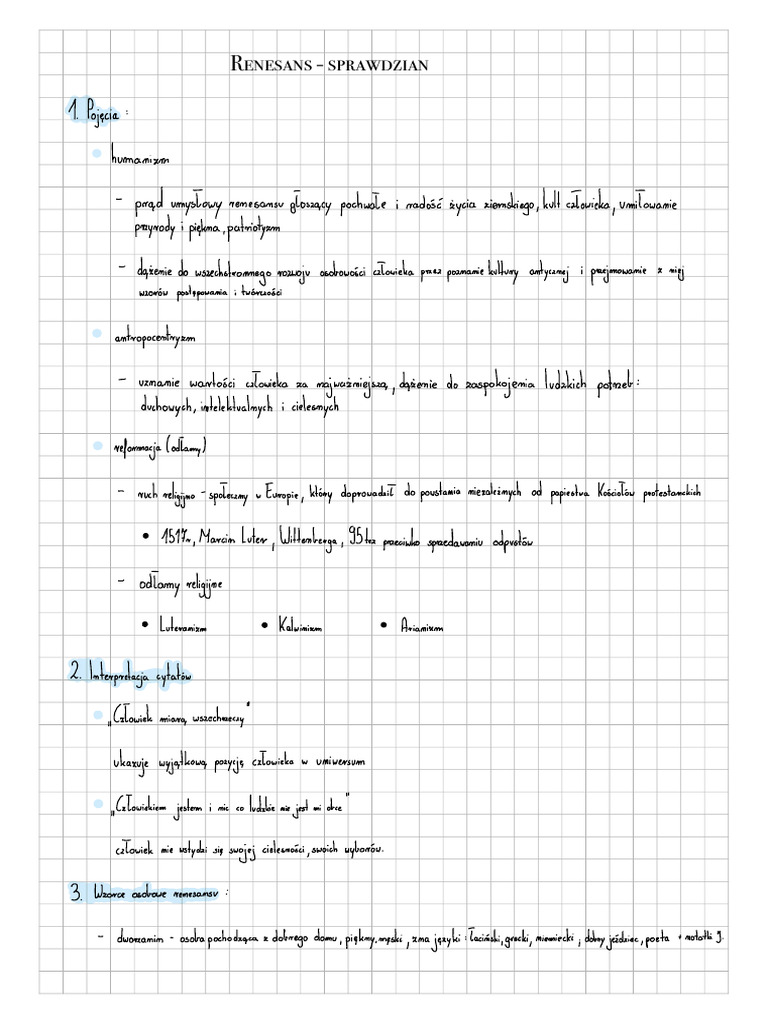 RENESANS - SPRAWDZIAN
1. Pojęcia :
humanizm
- prąd umysłowy renesansu głoszący pochwałe i radość życia ziemskiego, kult człowieka, umiłowanie
przyrody i piękna, patriotyzm
- dążenie do wszechstronnego rozwoju osobowości człowieka przez poznanie kultury antycznej i przejmowanie z niej
wzorów postępowania i twórczości
antropocentryzm
- uznanie wartości człowieka za najważniejszą, dążenie do zaspokojenia ludzkich potrzeb :
duchowych, intelektualnych i cielesnych
reformacja (odłamy)
- ruch religijno - społeczny w Europie, który doprowadził do powstania niezależnych od papiestwa Kościołów protestanckich
• 1517r, Marcin Luter, Wittenberga, 95 tez przeciwko sprzedawaniu odpustów
- odłamy religijne
• Luteranizm • Kalwinizm • Arianizm
2. Interpretacja cytatów
„Człowiek miarą wszechrzeczy"
ukazuje wyjątkową pozycję człowieka w uniwersum
„Człowiekiem jestem i nic co ludzkie nie jest mi obce"
człowiek nie wstydzi się swojej cielesności, swoich wyborów.
3. Wzorce osobowe renesansu :
- dworzanin - osoba pochodząca z dobrego domu, piękny, męski, zna języki : łaciński, grecki, niemiecki, dobry jeździec, poeta + notatki g.